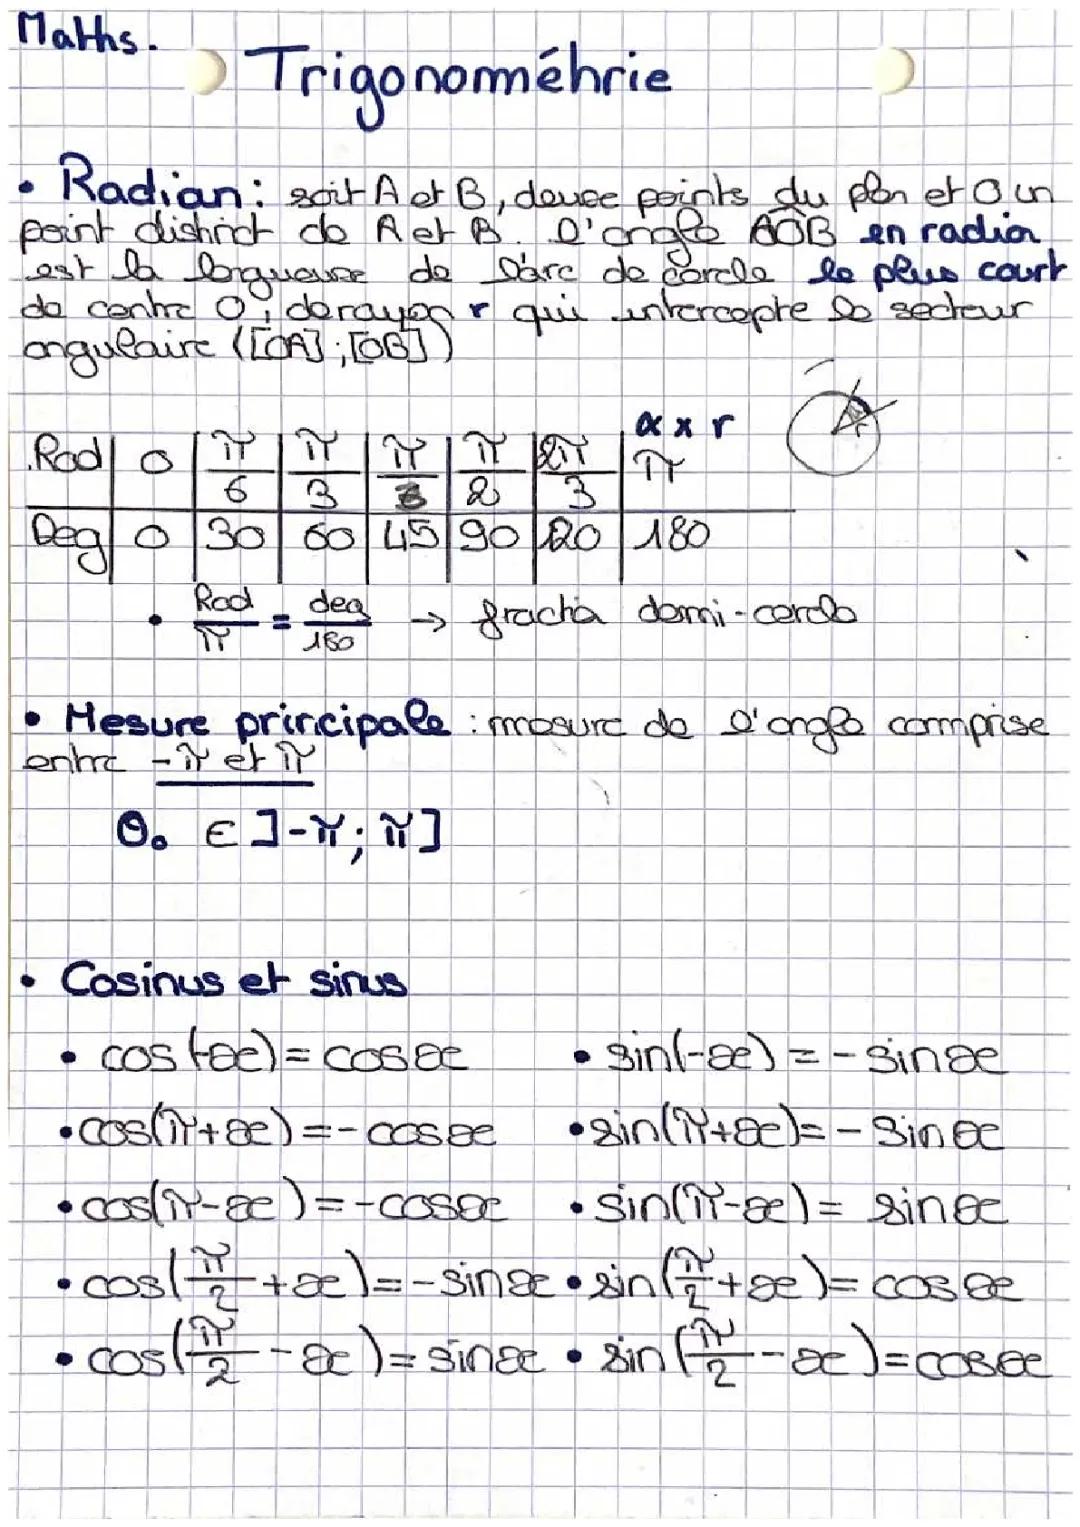 Maths.
Trigonométrie
• Radian : soit A et B, deux points du plan et O un
point distinct de A et B. l'angle AOB en radian
est la longueur de l'arc de cercle le plus court
de centre O, de rayon r qui intercepte le secteur
angulaire ([OA] ; [OB])
α x r
Rad | 0 | π/6 | π/3 | π/ | π/2 | 2π/3 | π
Deg | 0 | 30 | 60 | 45 | 90 | 120 | 180
• Rad/π = deg/180 → fraction demi-cercle
• Mesure principale : mesure de l'angle comprise
entre -π et π
θ₀ ∈ ]-π ; π]
• Cosinus et sinus
• cos(-x) = cos x • sin(-x) = - sin x
• cos(π+x) = - cos x • sin(π+x) = - sin x
• cos(π-x) = -cos x • sin(π-x) = sin x
• cos(π/2 + x) = - sin x • sin(π/2 + x) = cos x
• cos(π/2 - x) = sin x • sin(π/2 - x) = cos x